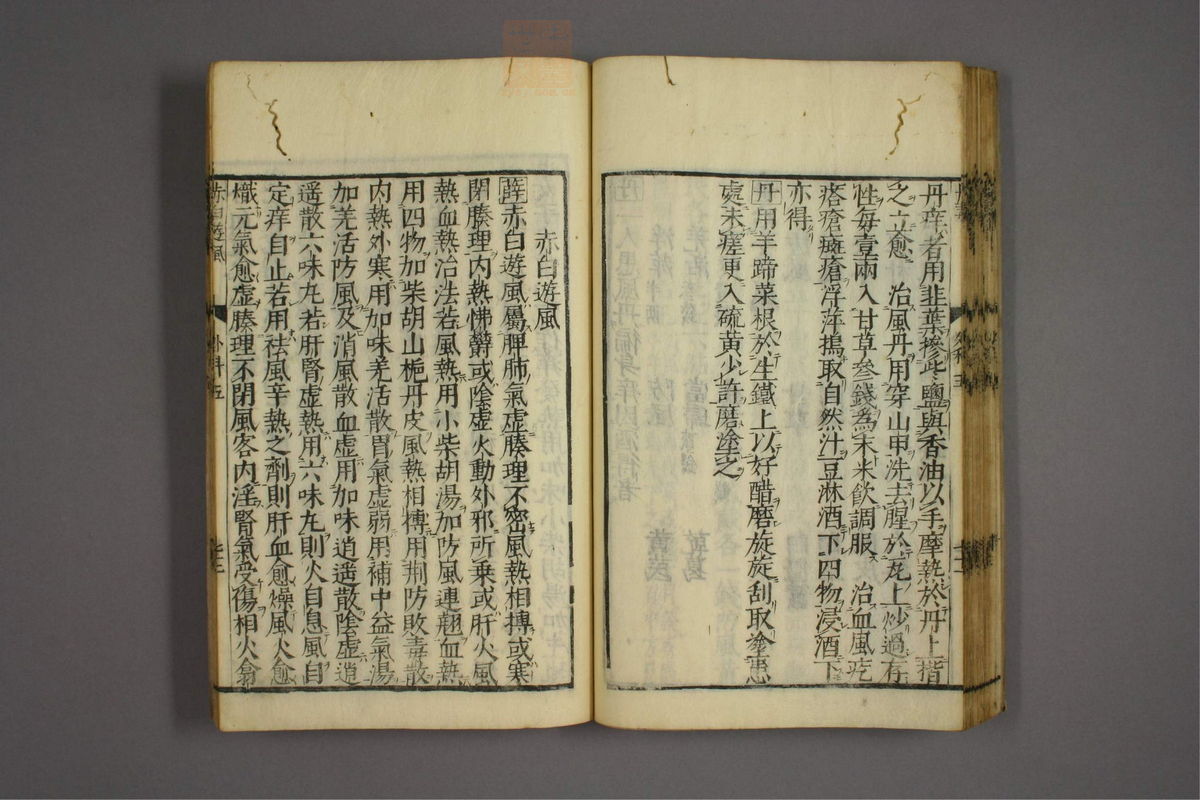 丹痒者用韭葉摻此鹽與香油以手摩熱於丹上揩
之立愈　治風丹用穿山甲洗去腥於瓦上炒過存
性每壹兩入甘草叄錢為末米飲調服　治血風疙
瘩瘡㿀瘡浮萍搗取自然汁豆淋酒下四物浸酒下
亦得
丹用羊蹄菜根於生鐵上以好醋磨旋旋刮取塗患
處未瘥更入硫黃少許磨塗之
赤白遊風
薛赤白遊風屬脾肺氣虛腠理不密風熱相搏或寒
閉腠理內熱怫鬱或陰虛火動外邪所乗或肝火風
熱血熱治法若風熱用小柴胡湯加防風連翹血熱
用四物加柴胡山梔丹皮風熱相搏用荆防敗毒散
內熱外寒用加味羌活散胃氣虛弱用補中益氣湯
加羌活防風及消風散血虛用加味逍遥散陰虛逍
遥散六味丸若肝腎虛熱用六味丸則火自息風自
定痒自止若用祛風辛熱之劑則肝血愈燥風火愈
熾元氣愈虛腠理不閉風客內淫腎氣受傷相火翕
赤白遊風
外科五